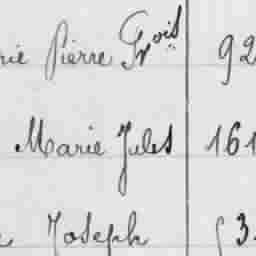 rie Pierre Frois 92
Marie Jules 161
Joseph 53